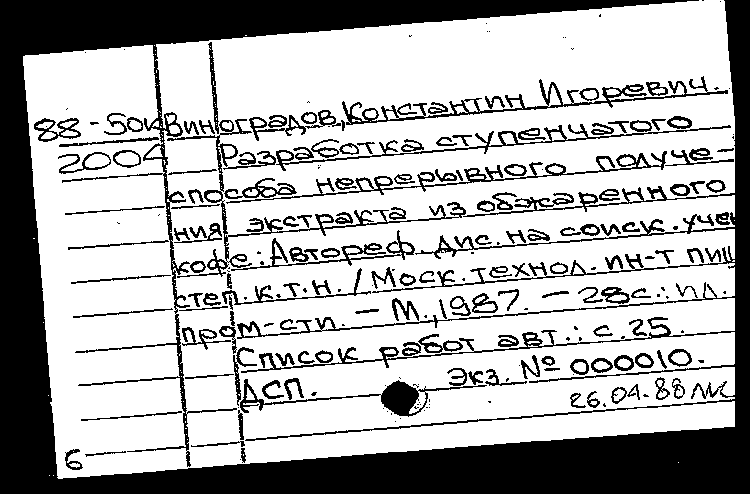 88-50к Виноградов, Константин Игоревич.
2004 Разработка ступенчатого
способа непрерывного получе-
ния экстракта из обжаренного
кофе: Автореф. дис. на соиск. учен
степ. к.т.н. / Моск. технол. ин-т пищ
пром-сти. – М., 1987. – 28с.: ил.
Список работ авт.: с.25.
ДСП. Экз. № 000010.
26.04.88
6